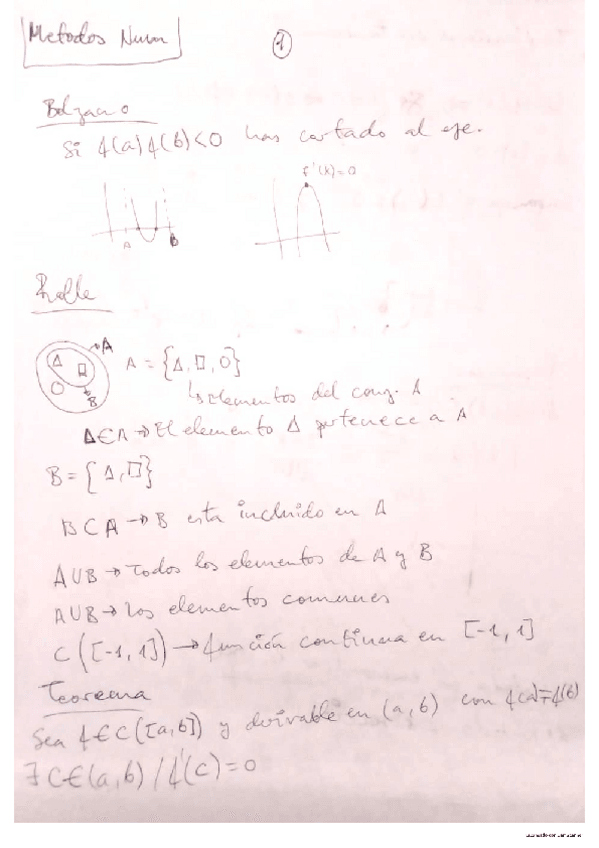 Metodos Num
1
Bolzano
Si f(a) f(b) < 0 has cortado al eje.
f'(x)=0
A B
Rolle
A
B
A = {Δ, □, O}
↳ Elementos del conj. A
Δ ∈ A → El elemento Δ pertenece a A
B = {Δ, □}
B ⊂ A → B esta incluido en A
A ∪ B → Todos los elementos de A y B
A ∪ B → Los elementos comunes
C ([-1, 1]) → función continua en [-1, 1]
Teorema
Sea f ∈ C([a,b]) y derivable en (a, b) con
∃ C ∈ (a, b) / f'(c) = 0